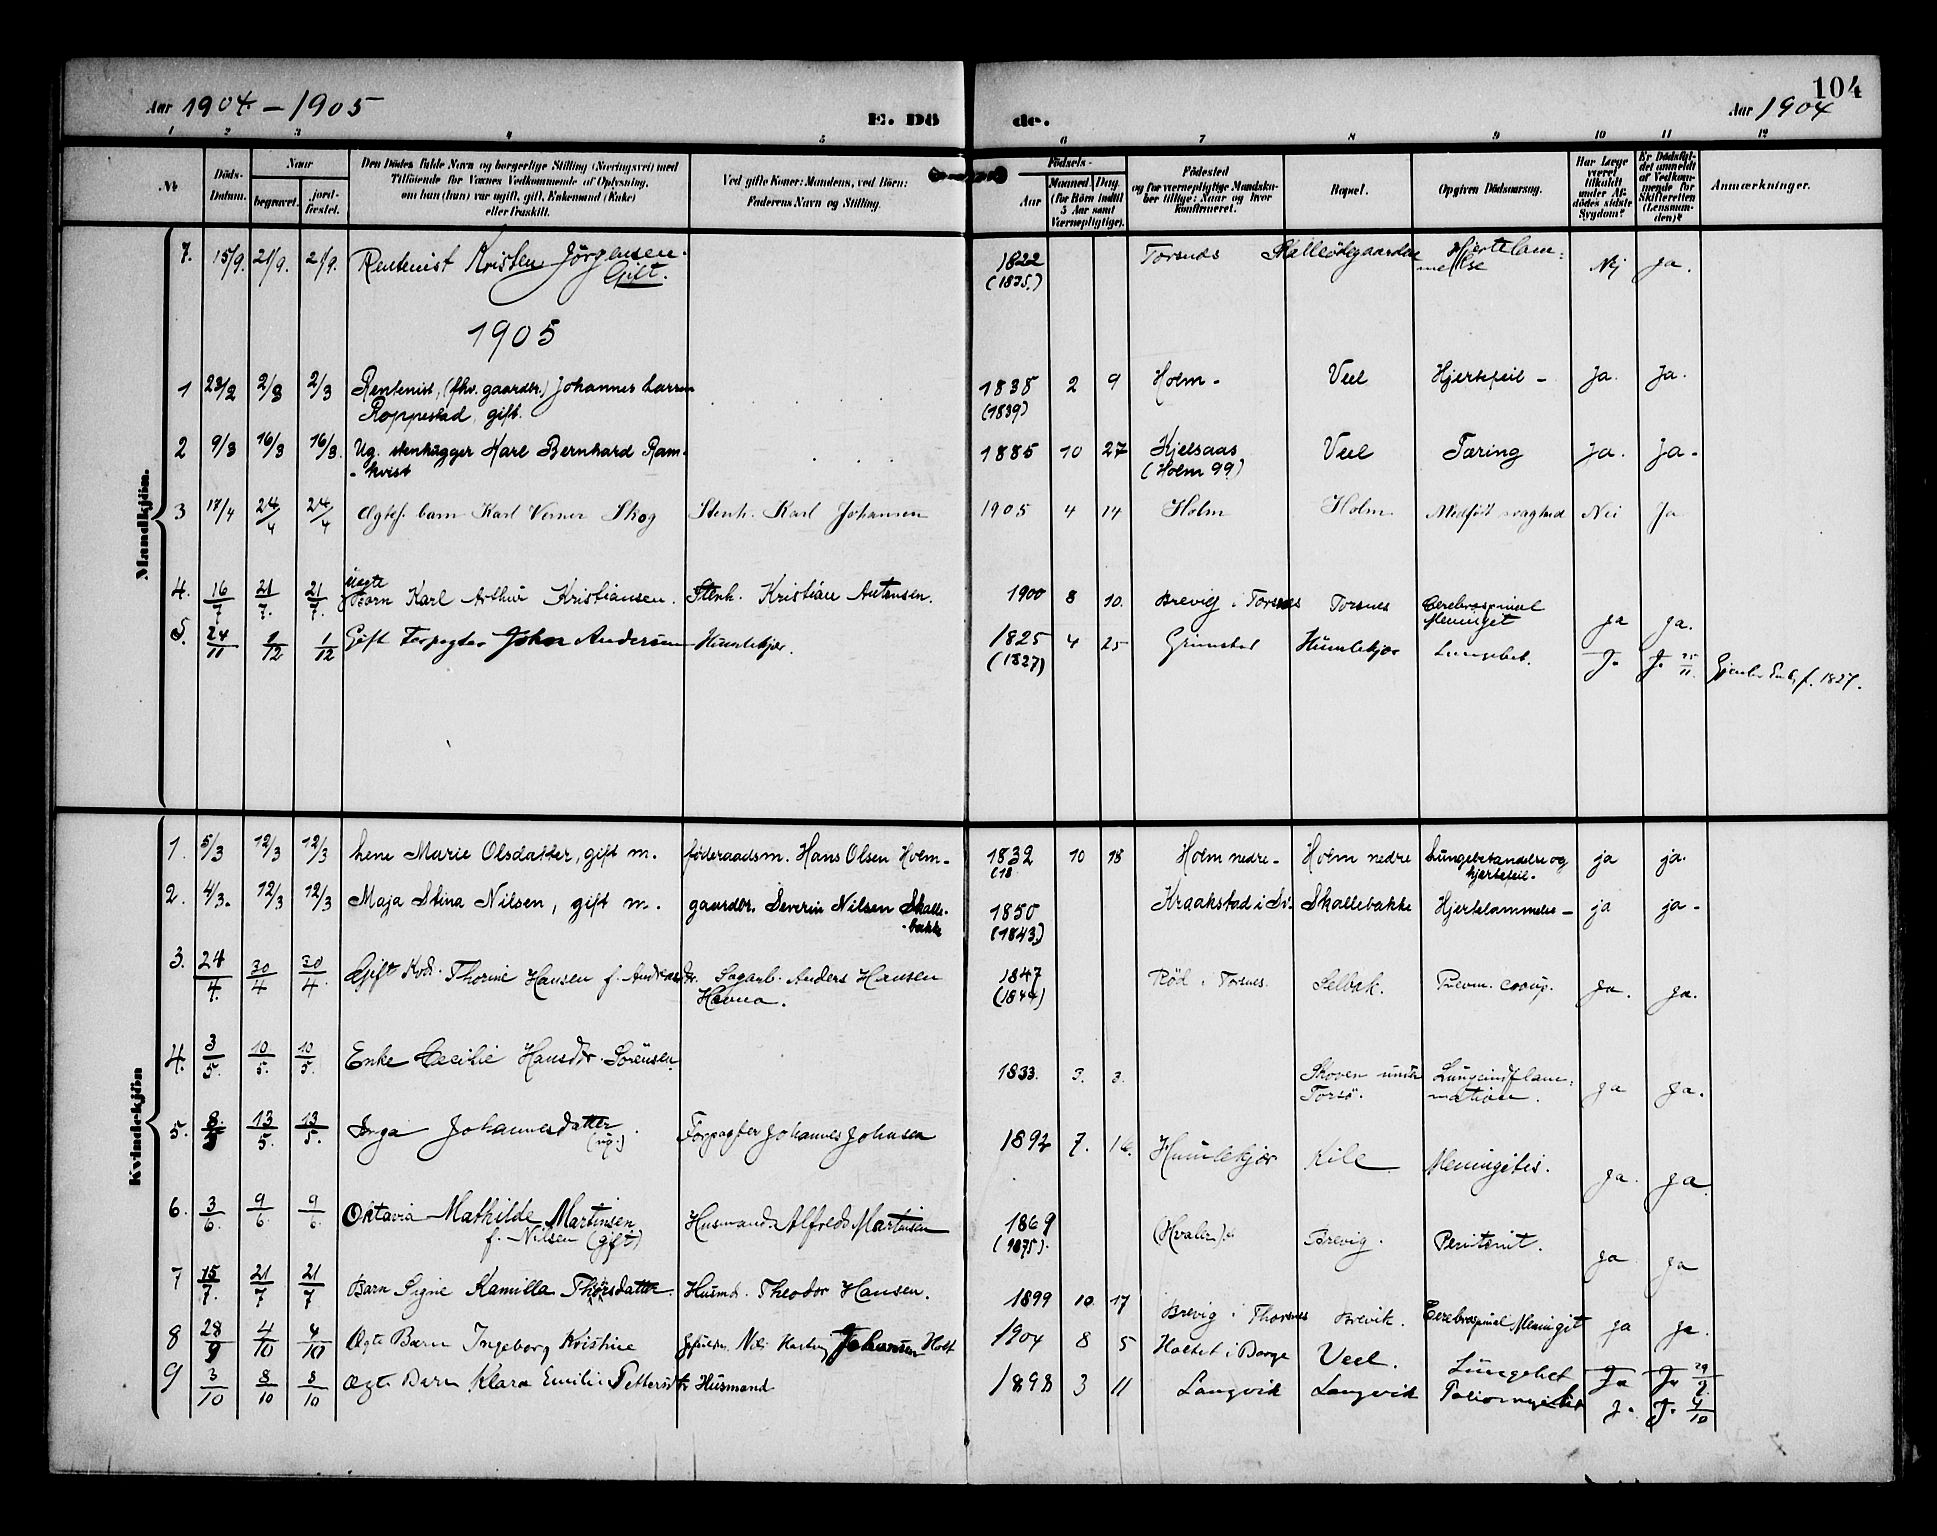 104
Aar 1904 - 1905
E. Dö de.
Aar 1904
1 2 3 4 5 6 7 8 9 10 11 12
No
Döds-Datum.
Naar
begravet.
jord-fæstet.
Den Dödes fulde Navn og borgerlige Stilling (Næringsvei) med
Tilföiende for Voxnes Vedkommende af Oplysning,
om han (hun) var ugift, gift, Enkemand (Enke)
eller fraskilt.
Ved gifte Koner: Mandens, ved Börn:
Faderens Navn og Stilling.
Födsels-
Aar
Maaned. Dag.
(for Börn indtil
5 Aar samt
Værnepligtige).
Födested
og for værnepligtige Mandska-
ber tillige: Naar og hvor
konfirmeret.
Bopæl.
Opgiven Dödsaarsag.
Har Læge
været
tilkaldt
under Af-
dödes sidste
Sygdom?
Er Dödsfal-
det anmeldt
af Vedkom-
mende for
Skifteretten
(Lensman-
den)?
Anmærkninger.
Mandkjön.
7. 15/9. 21/9. 21/9. Rentenist Kristen Jørgensen. 1822 Torsnes Skalleödegaarden Hjertelam- Nej Ja.
Gift. (1835.) melse
1905
1 23/2 2/3 2/3 Rentenist, (fhv. gaardbr.) Johannes Larsen 1838 2 9 Holm - Veel Hjertefeil - Ja. Ja.
Roppestad, gift. (1839)
2 9/3 16/3 16/3. Ug. stenhugger Karl Bernhard Ram- 1885 10 27 Kjelsaas Veel Tæring Ja. Ja.
- kvist (Holm 99)
3 17/4 24/4 24/4 Ægtef. barn Karl Verner Skog Stenh. Karl Johansen 1905 4 14 Holm Holm Medfødt svaghed Nei Ja
4. 16/7 21/7. 21/7. Uægte Barn Karl Arthur Kristiansen. Stenh. Kristian Antonsen. 1900 8 10. Brevig i Torsnes Torsnes Cerebrospinal
Meninget ja ja.
5. 24/11 1/12 1/12 Gift Forpagter John Andersen Humlekjær. 1825 4 25 Grimstad Humlekjær Lungebet. J. J. 25/11.
(1827) f. 1827.
Kvindekjön
1. 5/3 12/3 12/3 Lene Marie Olsdatter, gift m. føderaadsm. Hans Olsen Holm- 1832 10 18 Holm nedre - Holm nedre Lungebetændelse og ja ja.
(18 hjertefeil.
2. 4/3. 12/3 12/3 Maja Stina Nilsen, gift m. gaardbr. Severin Nilsen Skalle- 1850 Kraakstad i Sv. Skallebakke Hjertelammelse - ja ja -
-bakke (1843.)
3. 24/4. 30/4 30/4. Gift Kvd. Thorine Hansen f. Andreasdtr. Sagarb. Anders Hansen 1847 Röd i Torsnes. Selbak. Pnevm. croup. Ja. Ja.
(1844)
4. 3/5. 10/5. 10/5. Enke Cecilie Hansdtr. Sörensen 1833. 3. 3. Skoven under Lungeinflam-
Torsö. mation. ja Ja.
5. 8./5 13/5. 13/5. Inga Johannesdatter Forpagter Johannes Johnsen 1892 7. 16. Humlekjær Kile Meningitis. ja. ja
(ug.)
6. 3/6. 9/6. 9/6 Oktavia Mathilde Martinsen Husmand. Alfred Martinsen 1869 (Hvaler). Brevig. Peritonit. ja ja
f. Nilsen (gift) (1875).
7 15/7. 21/7 21/7 Barn Signe Kamilla Thorsdatter. Husmd. Theodor Hansen. 1899 10. 17 Brevig i Thorsnes Brevik. Cerebrospinal Meningit ja ja.
8 28/9 4/10 4/10 Ægte Barn Ingeborg Kristine Johansen Holt 1904 8 5 Holtet i Borge Veel. Lungebet Ja J. 29/9.
9 3/10 8/10 8/10 Ægte Barn Klara Emilie Pettersdtr Husmand 1898 3 11 Langvik Langvik J. J. 4/10